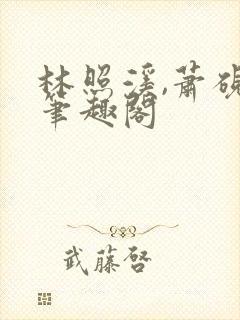 林照溪,萧砚
笔趣阁
武藤啓